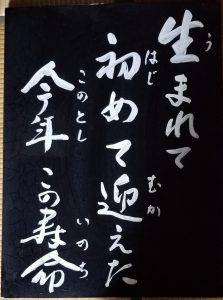 生まれて
初めて迎えた
今年この寿命
う
はじ
むか
このとし
いのち